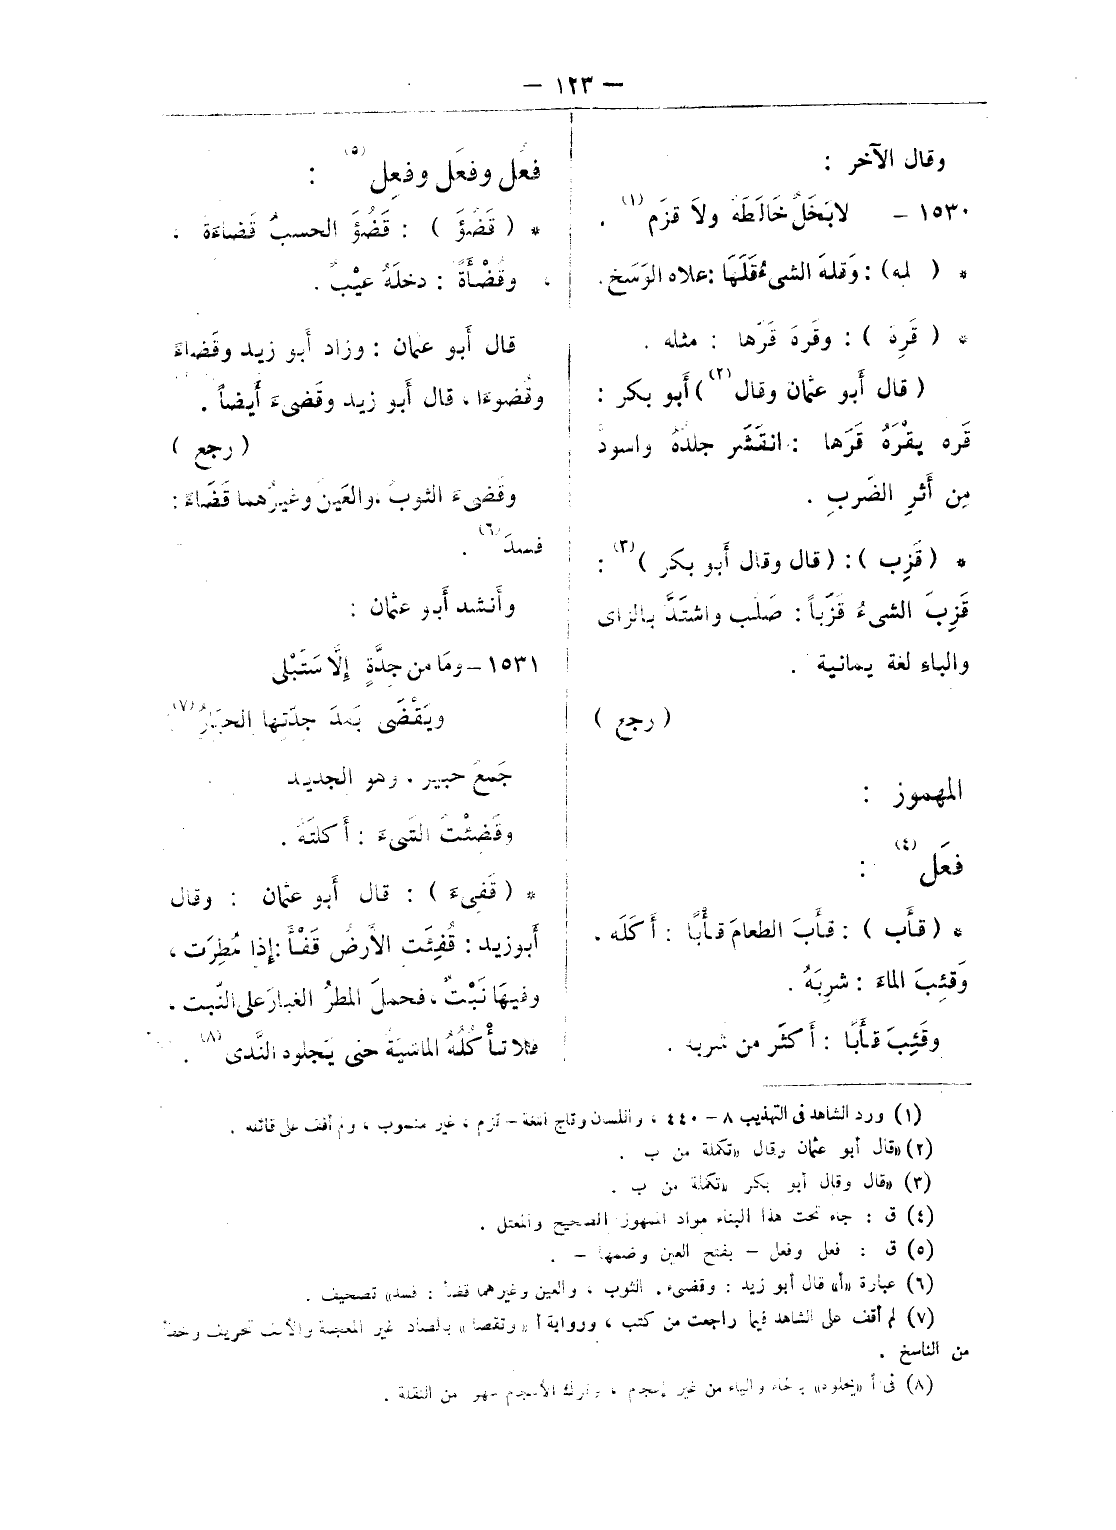 — ١٢٣ —
وقال الآخر :
١٥٣٠ – لابَخَلٌ خَالَطَهُ ولاَ قَزَم (١) .
* ( له) : وَقلهَ الشىءُ قَلَهَا : علاه الوَسَخ .
* ( قَرِهَ ) : وقرهَ قَرَها : مثله .
( قال أَبو عثمان وقال (٢) ) أَبو بكر :
قَره يقْرَهُ قَرَها : انقَشَر جلدُهُ واسودَّ
مِن أَثرِ الضَربِ .
* ( قَزِب ) : ( قال وقال أَبو بكر ) (٣) :
قَزِبَ الشىءُ قَزَباً : صَلُب واشتَدَّ بالزاى
والباءِ لغة يمانية .
( رجع )
المهموز :
فعَل (٤) :
* ( قأَب ) : قأَبَ الطعامَ قأْبًا : أَكَلَه .
وَقئِبَ الماءَ : شرِبَهُ .
وقَئِبَ قأَبًا : أَكثَر من شربه .
فعُل وفعَل وفعِل (٥) :
* ( قَضُؤَ ) : قَضُؤَ الحسبُ قَضاءَة ،
وقُضْأَةً : دخلَهُ عيْبٌ .
قال أَبو عثمان : وزاد أَبو زيد وقَضاءً
وقُضوءًا ، قال أَبو زيد وقَضىءَ أَيضاً .
( رجع )
وقَضىءَ الثوبُ ، والعَينُ وغيرُهما قَضَاءً :
فسدَ (٦) .
وأَنشد أَبو عثمان :
١٥٣١ – ومَا من جدَّةٍ إلَّا سَتَبْلى
ويَقْضَى بَعدَ جدّتِها الحبَارُ (٧)
جَمعَ حبير . وهو الجديد
وقَضئْتُ الشىءَ : أَكلتَهُ .
* ( قَفىءَ ) : قال أَبو عثمان : وقال
أَبوزيد : قُفِئَت الأَرضُ قَفْأً : إذا مُطِرَت ،
وفيهَا نَبْتٌ ، فحملَ المطرُ الغبارَ على النَّبت .
فلا تأْكُلُهُ الماشيةُ حتى يَجلود النَّدى (٨) .
(١) ورد الشاهد فى التهذيب ٨ – ٤٤٠ ، واللسان وتاج اللغة – قزم ، غير منسوب ، ولم أقف على قائله .
(٢) «قال أبو عثمان وقال «تكملة من ب .
(٣) «قال وقال أبو بكر «تكملة من ب .
(٤) ق : جاء تحت هذا البناء مواد المهموز الصحيح والمعتل .
(٥) ق : فعل وفعل – بفتح العين وضمها – .
(٦) عبارة «أ» قال أبو زيد : وقضىء . الثوب ، والعين وغيرهما قضأ : فسد» تصحيف .
(٧) لم أقف على الشاهد فيما راجعت من كتب ، ورواية أ « وتقصا » بالصاد غير المعجمة والألف تحريف وخطأ
من الناسخ .
(٨) فى أ «يخلود» بالخاء والياء من غير إعجام ، وترك الأعجام سهو من النقلة .